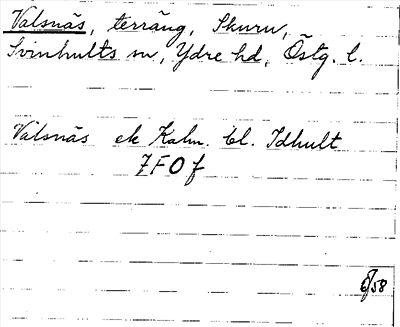 Valsnäs, terräng, Skuru,
Svinhults sn, Ydre hd, Östg. l.
Valsnäs ek Kahn. bl. Idhult
7F0f
6/58